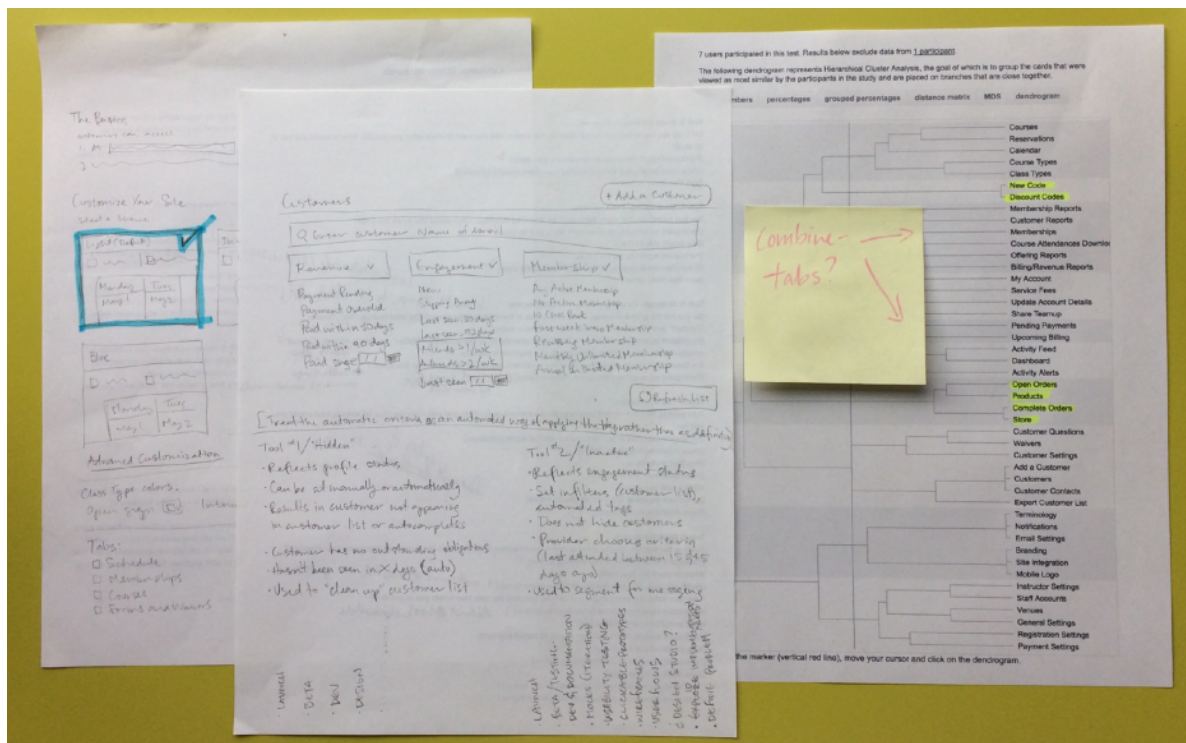 The Basics
Customize Your Site
Select a Scheme
Light (Default)
Monday Tues
May 1 May 2
Blue
Monday Tues
May 1 May 2
Advanced Customization
Class Type colors.
Open Sign
Tabs:
Schedule
Memberships
Courses
Forms and Waivers
Customers
+ Add a Customer
Q Enter customer name or email
Revenue
Payment Pending
Payment Overdue
Paid within 30 days
Paid within 90 days
Paid since
Engagement
New
Slipping Away
Last seen 30 days
Attends >1/wk
Attends >2/wk
Last seen
Membership
Any Active Membership
No Active Membership
10 Class Pack
Recurring Membership
Monthly Unlimited Membership
Annual Unlimited Membership
Refresh List
[Treat the automatic criteria as an automated way of applying the tag rather than as defining]
Tool #1/"Hidden"
• Reflects profile status
• Can be set manually or automatically
• Results in customer not appearing
in customer list or autocompletes
• Customer has no outstanding obligations
• Hasn't been seen in X days (auto)
• Used to "clean up" customer list
Tool #2/"Inactive"
• Reflects engagement status
• Set in filters (customer list),
automated tags
• Does not hide customers
• Provider chooses criteria
(last attended between 15 & 45
days ago)
• Used to segment for messaging
• LAUNCH
• BETA
• DEV
• DESIGN
• LAUNCH
• BETA/TESTING
• DEV & DOCUMENTATION
• MOCKS (ITERATION)
• USABILITY TESTING
• CLICKABLE PROTOTYPES
• WIREFRAMES
• USER FLOWS
DESIGN STUDIO?
• DEFINE PROBLEM
Combine
tabs?
7 users participated in this test. Results below exclude data from 1 participant.
The following dendrogram represents Hierarchical Cluster Analysis, the goal of which is to group the cards that were
viewed as most similar by the participants in the study and are placed on branches that are close together.
percentages grouped percentages distance matrix MDS dendrogram
Courses
Reservations
Calendar
Course Types
Class Types
New Code
Discount Codes
Membership Reports
Customer Reports
Memberships
Course Attendances Downlo
Offering Reports
Billing/Revenue Reports
My Account
Service Fees
Update Account Details
Share Teamup
Pending Payments
Upcoming Billing
Activity Feed
Dashboard
Activity Alerts
Open Orders
Products
Complete Orders
Store
Customer Questions
Waivers
Customer Settings
Add a Customer
Customers
Customer Contacts
Export Customer List
Terminology
Notifications
Email Settings
Branding
Site Integration
Mobile Logo
Instructor Settings
Staff Accounts
Venues
General Settings
Registration Settings
Payment Settings
the marker (vertical red line), move your cursor and click on the dendrogram.